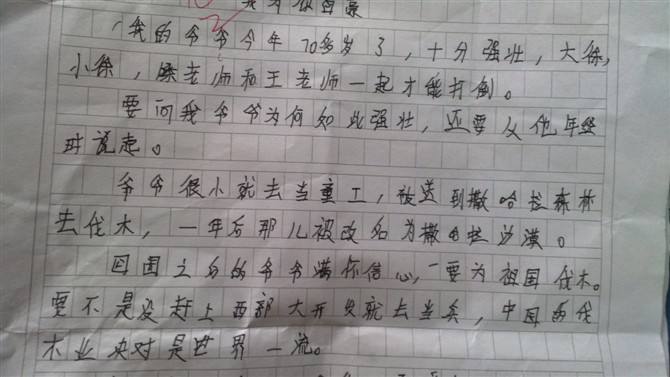 我的爷爷今年70多岁了,十分强壮,大徐,
小徐,陈老师和王老师一起才能打倒。
要问我爷爷为何如此强壮,还要从他年轻
时说起。
爷爷很小就去当童工,被送到撒哈拉森林
去伐木,一年后那儿被改名为撒哈拉沙漠。
回国之后的爷爷满怀信心,一要为祖国伐木。
要不是没赶上西部大开发就去当兵,中国的伐
木业决对是世界一流。